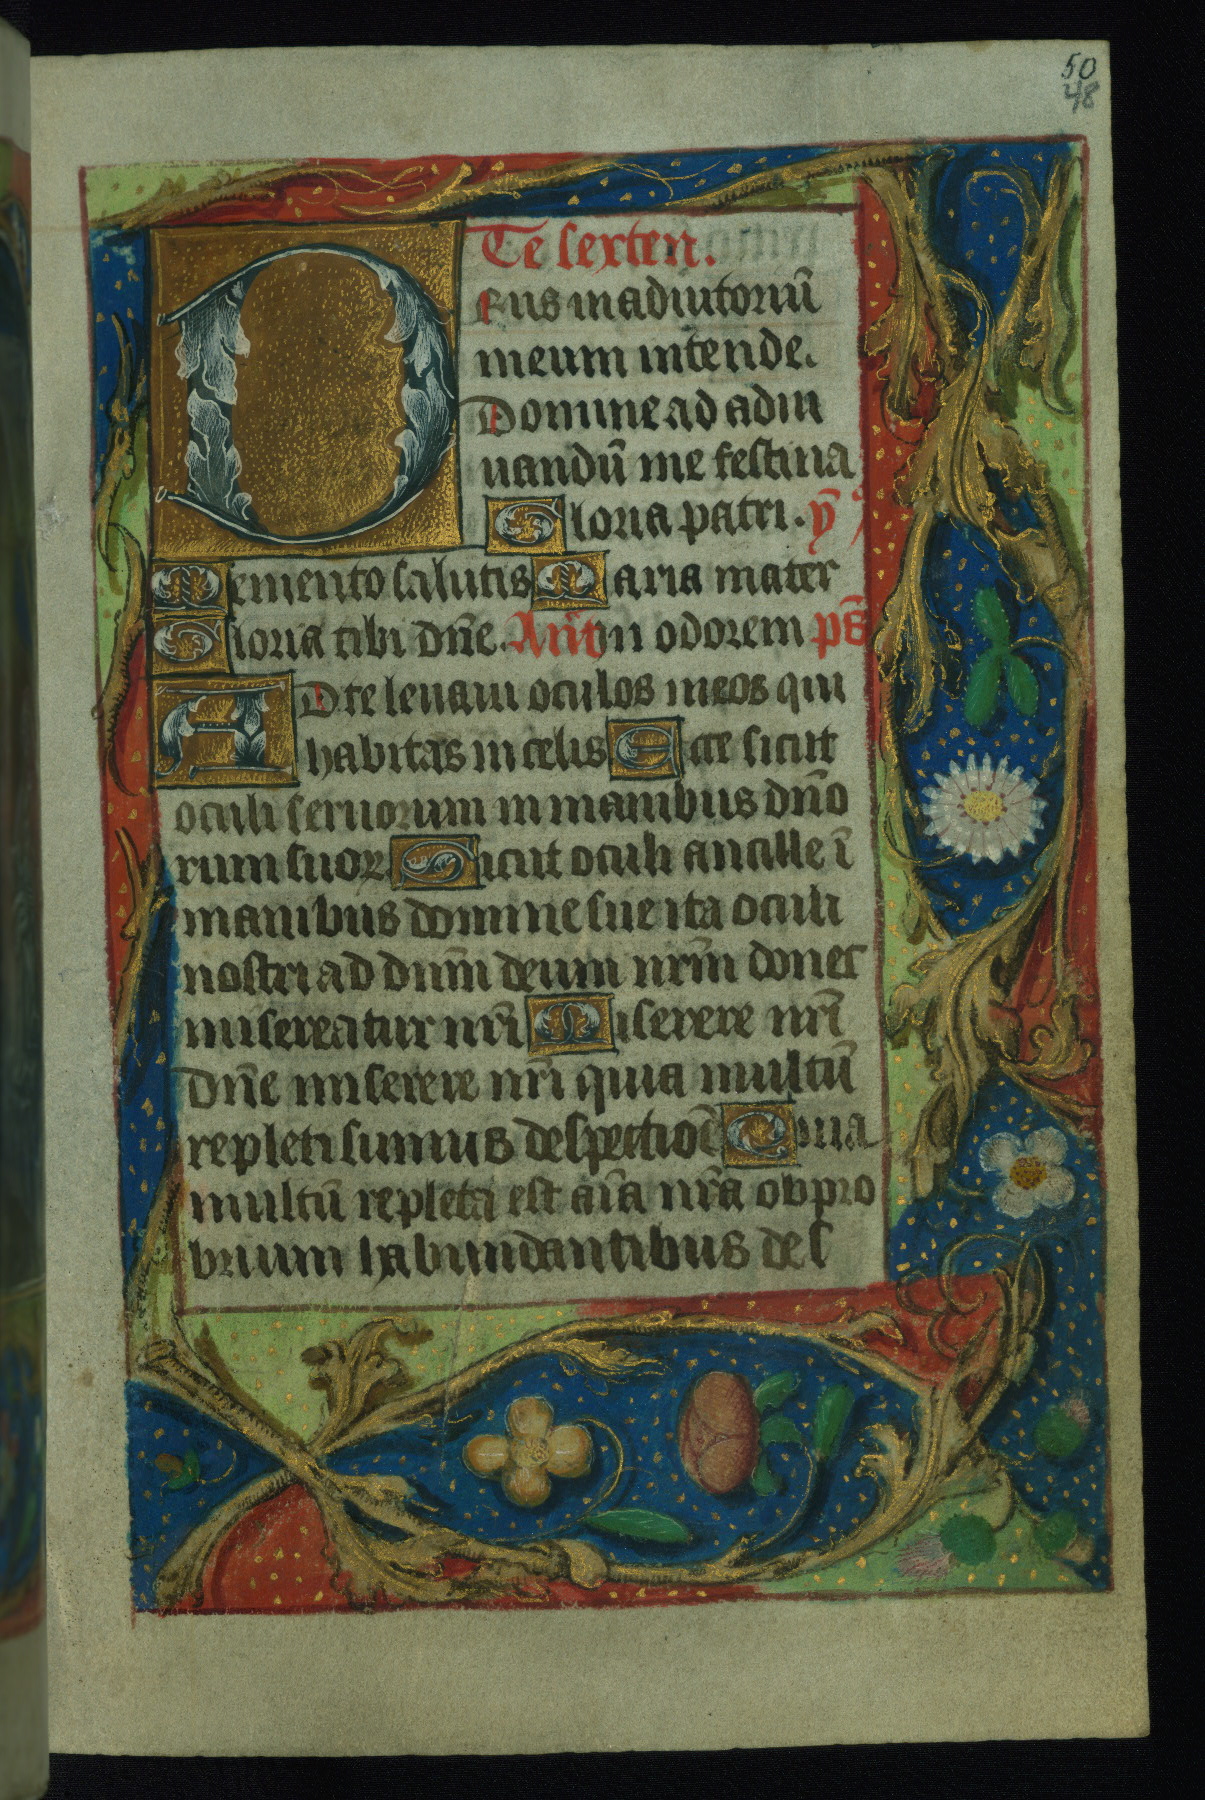 50
48
Te sexten.
Deus in adiutoriū
meum intende.
Domine ad adiu
uandū me festina
Gloria patri. ẏ̄
Memento salutis Maria mater
Gloria tibi dn̄e. An̄ In odorem ps̄
AD te leuaui oculos meos qui
habitas in celis Ecce sicut
oculi seruorum in manibus dn̄o
rum suoꝝ Sicut oculi ancille ī
manibus domine sue ita oculi
nostri ad dnm̄ deum nrm̄ donec
misereatur nr̄i Miserere nr̄i
Dn̄e miserere nr̄i quia multū
repleti sumus despectiōe Quia
multū repleta est aīa nr̄a obpro
brium habundantibus des